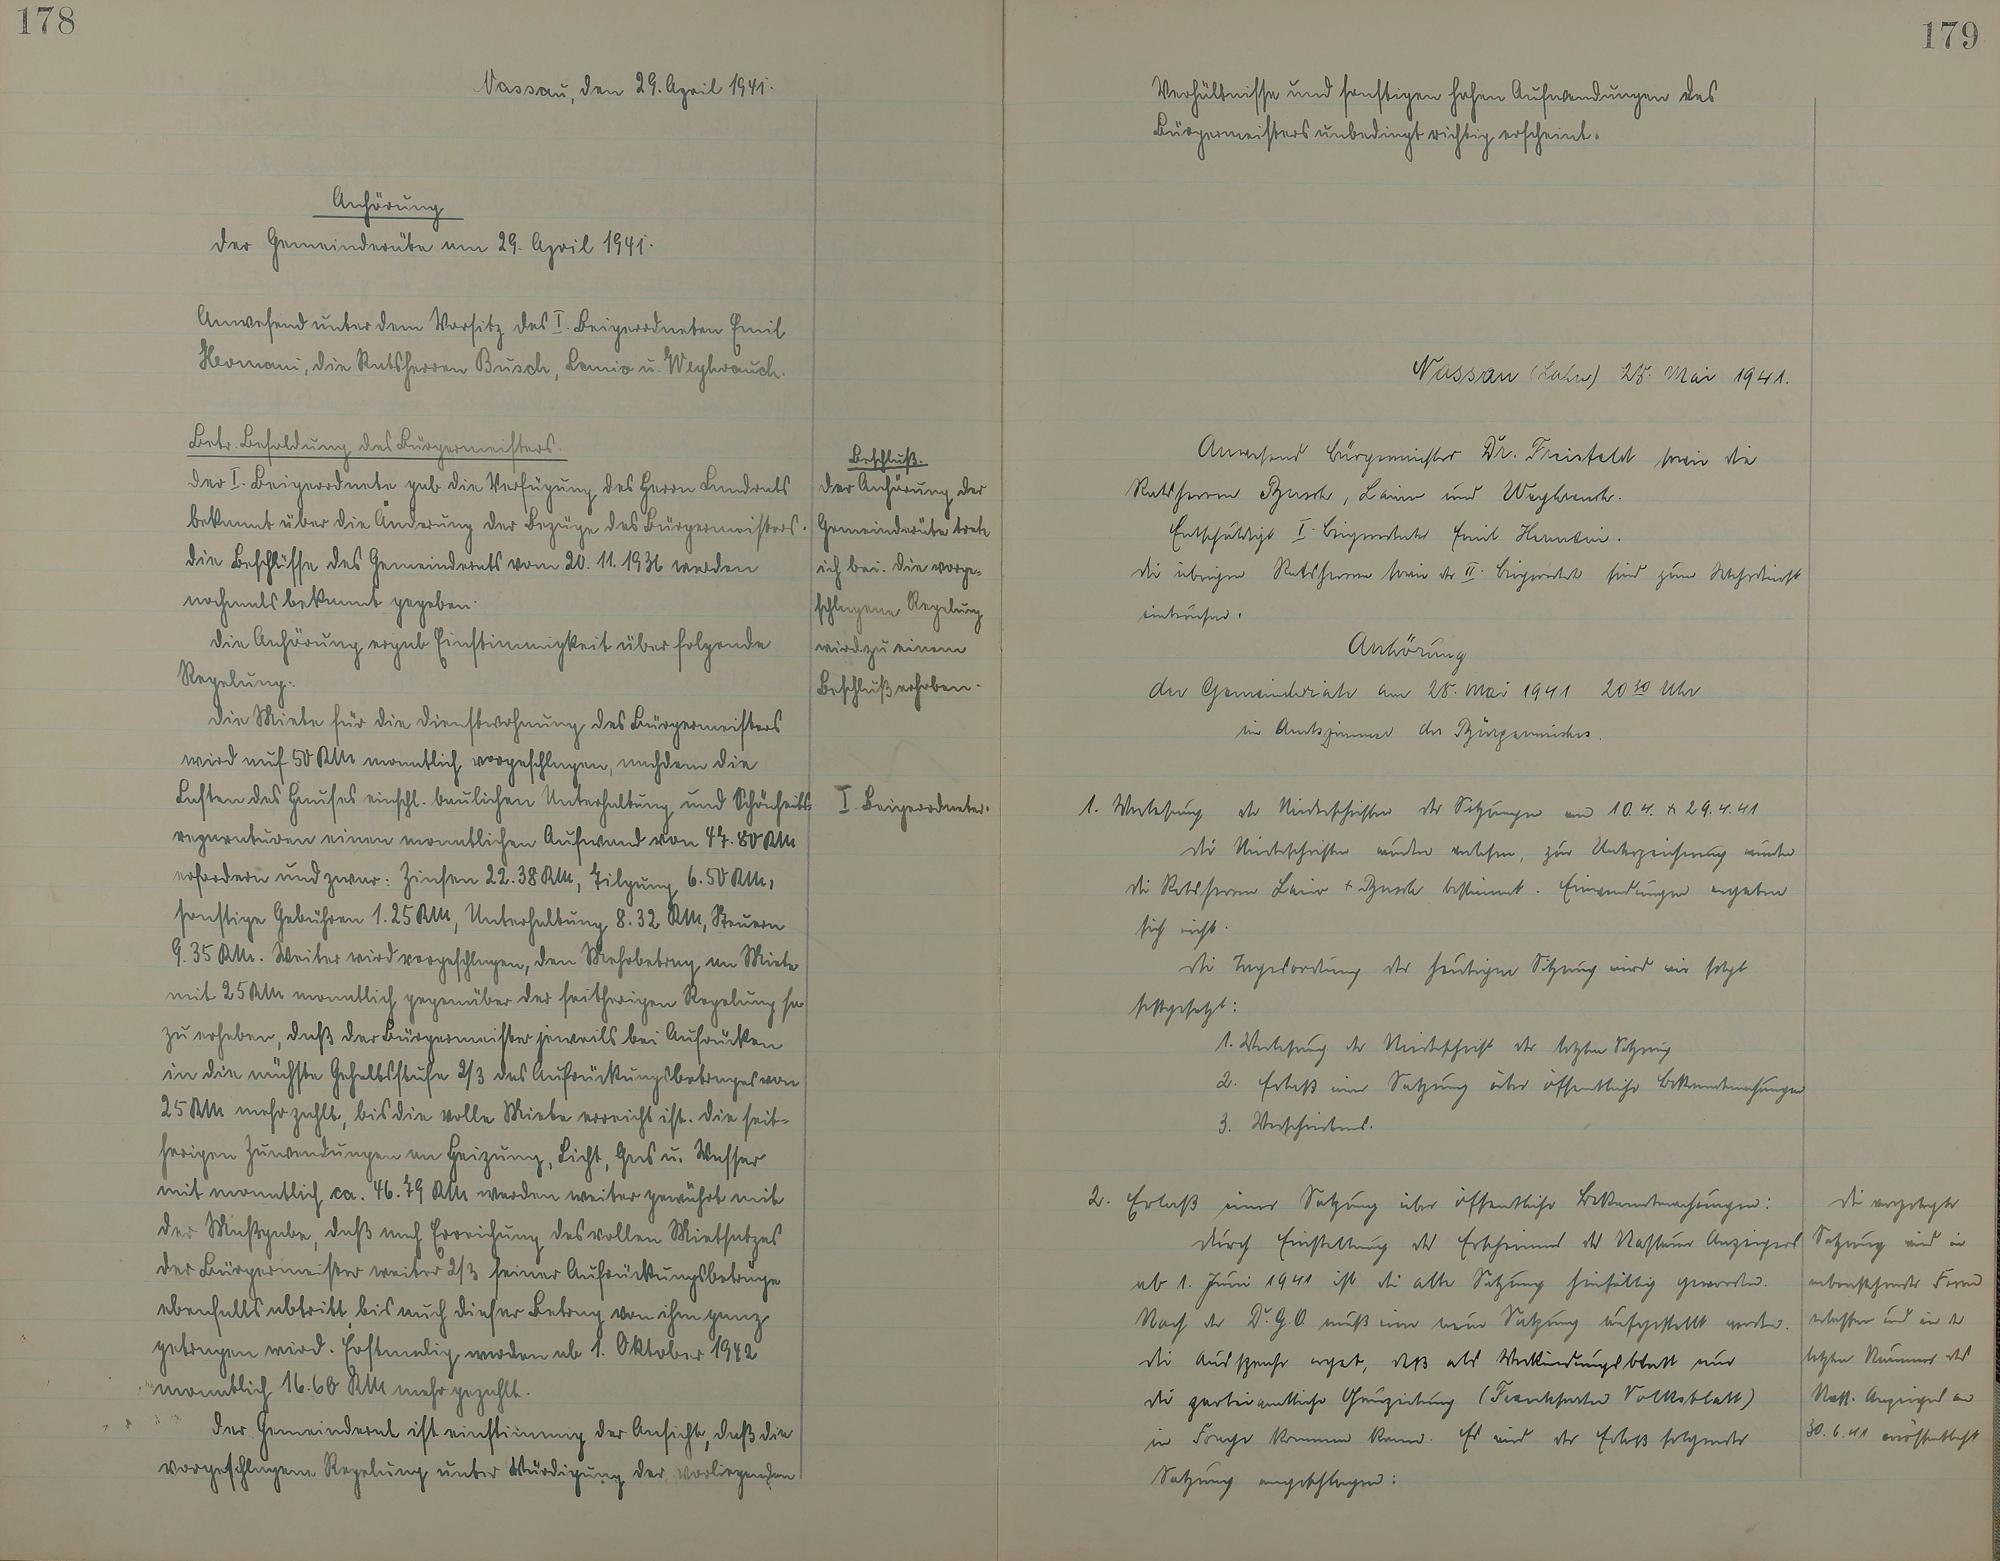 178
Nassau, den 29. April 1941.
Anhörung
der Gemeinderäte am 29. April 1941.
Anwesend unter dem Vorsitz des I. Beigeordneten Emil
Hermani, die Ratsherren Busch, u. Weyhrauch.
Betr. Besoldung des Bürgermeisters.
Der I. Beigeordnete gab die Verfügung des Herrn Landrats
bekannt über die Änderung der Bezüge des Bürgermeisters.
Die Beschlüsse des Gemeinderats vom 20. 11. 1936 werden
nochmals bekannt gegeben.
Die Anhörung ergab Einstimmigkeit über folgende
Regelung:
Die Miete für die Dienstwohnung des Bürgermeisters
wird auf 50 RM monatlich vorgeschlagen, nachdem die
Lasten des Hauses einschl. baulichen Unterhaltung und Schönheits-
reparaturen einen monatlichen Aufwand von 47.80 RM
erfordern und zwar: Zinsen 22.38 RM, Tilgung 6.50 RM,
sonstige Gebühren 1.25 RM, Unterhaltung 8.32 RM, Steuern
9.35 RM. Weiter wird vorgeschlagen, den Mehrbetrag an Miete
mit 25 RM monatlich gegenüber der seitherigen Regelung so
zu erheben, daß der Bürgermeister jeweils bei Aufrücken
in die nächste Gehaltsstufe 2/3 des Aufrückungsbetrages von
25 RM mehr zahlt, bis die volle Miete erreicht ist. Die seit-
herigen Zuwendungen an Heizung, Licht, Gas u. Wasser
mit monatlich ca. 46.79 RM werden weiter gewährt mit
der Maßgabe, daß nach Erreichung des vollen Mietsatzes
der Bürgermeister weiter 2/3 seiner Aufrückungsbeträge
ebenfalls abtritt, bis auch dieser Betrag von ihm ganz
getragen wird. Erstmalig werden ab 1. Oktober 1942
monatlich 16.60 RM mehr gezahlt.
Der Gemeinderat ist einstimmig der Ansicht, daß die
vorgeschlagene Regelung unter Würdigung der vorliegenden
Beschluß.
Der Anhörung der
Gemeinderäte trete
ich bei. Die vorge-
schlagene Regelung
wird zu einem
Beschluß erhoben.
I. Beigeordneter.
179
Verhältnisse und sonstigen hohen Aufwendungen des
Bürgermeisters unbedingt richtig erscheint.
Nassau (Lahn) 28. Mai 1941.
Anwesend Bürgermeister Dr. sowie die
Ratsherren Busch, und Weyhrauch.
Entschuldigt I. Beigeordneter Emil Hermani.
Die übrigen Ratsherren sowie der II. Beigeordnete sind zum Wehrdienst
einberufen.
Anhörung
der Gemeinderäte am 28. Mai 1941 20 30 Uhr
im Amtszimmer des Bürgermeisters.
1. Verlesung der Niederschriften der Sitzungen am 10.4. + 29.4.41
Die Niederschriften wurden verlesen, zur Unterzeichnung wurden
die Ratsherren + Busch bestimmt. Einwendungen ergaben
sich nicht.
Die Tagesordnung der heutigen Sitzung wird wie folgt
festgesetzt:
1. Verlesung der Niederschrift der letzten Sitzung
2. Erlaß einer Satzung über öffentliche Bekanntmachungen
3. Verschiedenes.
2. Erlaß einer Satzung über öffentliche Bekanntmachungen:
Durch Einstellung des Erscheinens des Nassauer Anzeigers
ab 1. Juni 1941 ist die alte Satzung hinfällig geworden.
Nach der D.G.O. muß eine neue Satzung aufgestellt werden.
Die Aussprache ergab, daß als Verkündungsblatt nur
die parteiamtliche Gauzeitung (Frankfurter Volksblatt)
in Frage kommen kann. Es wird der Erlaß folgender
Satzung vorgeschlagen:
Die vorgelegte
Satzung wird in
nebenstehender Form
erlassen und in der
letzten Nummer des
Nass. Anzeigers am
30. 6. 41 veröffentlicht